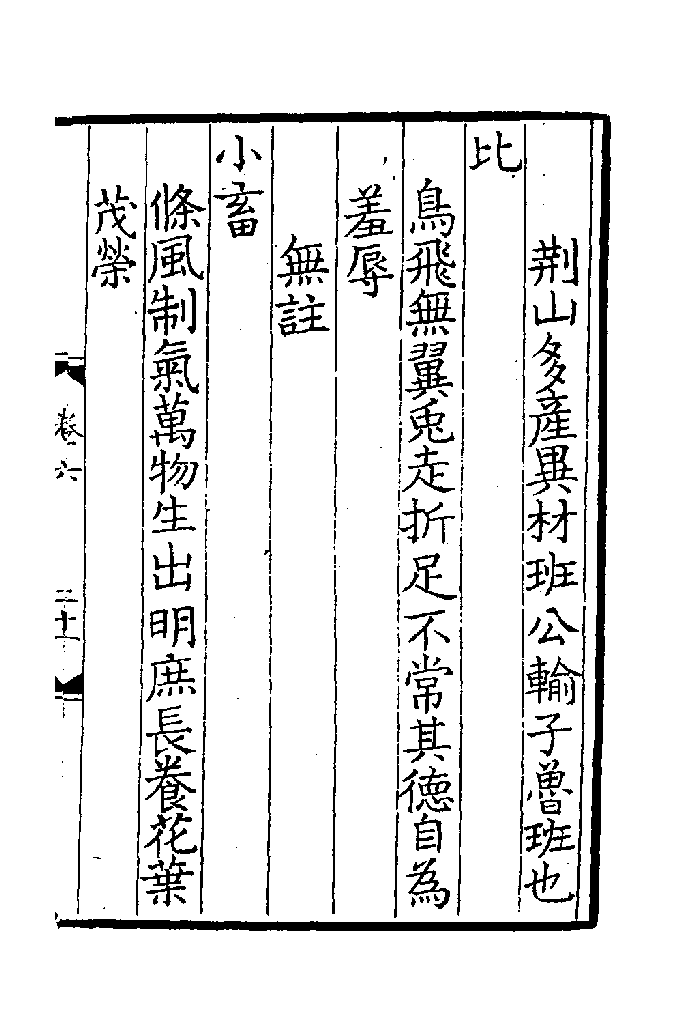 荆山多產異材班公輸子魯班也
比
鳥飛無翼兎走折足不常其德自為
羞辱
無註
小畜
條風制氣萬物生出明庶長養花葉
茂榮
卷六
二十一